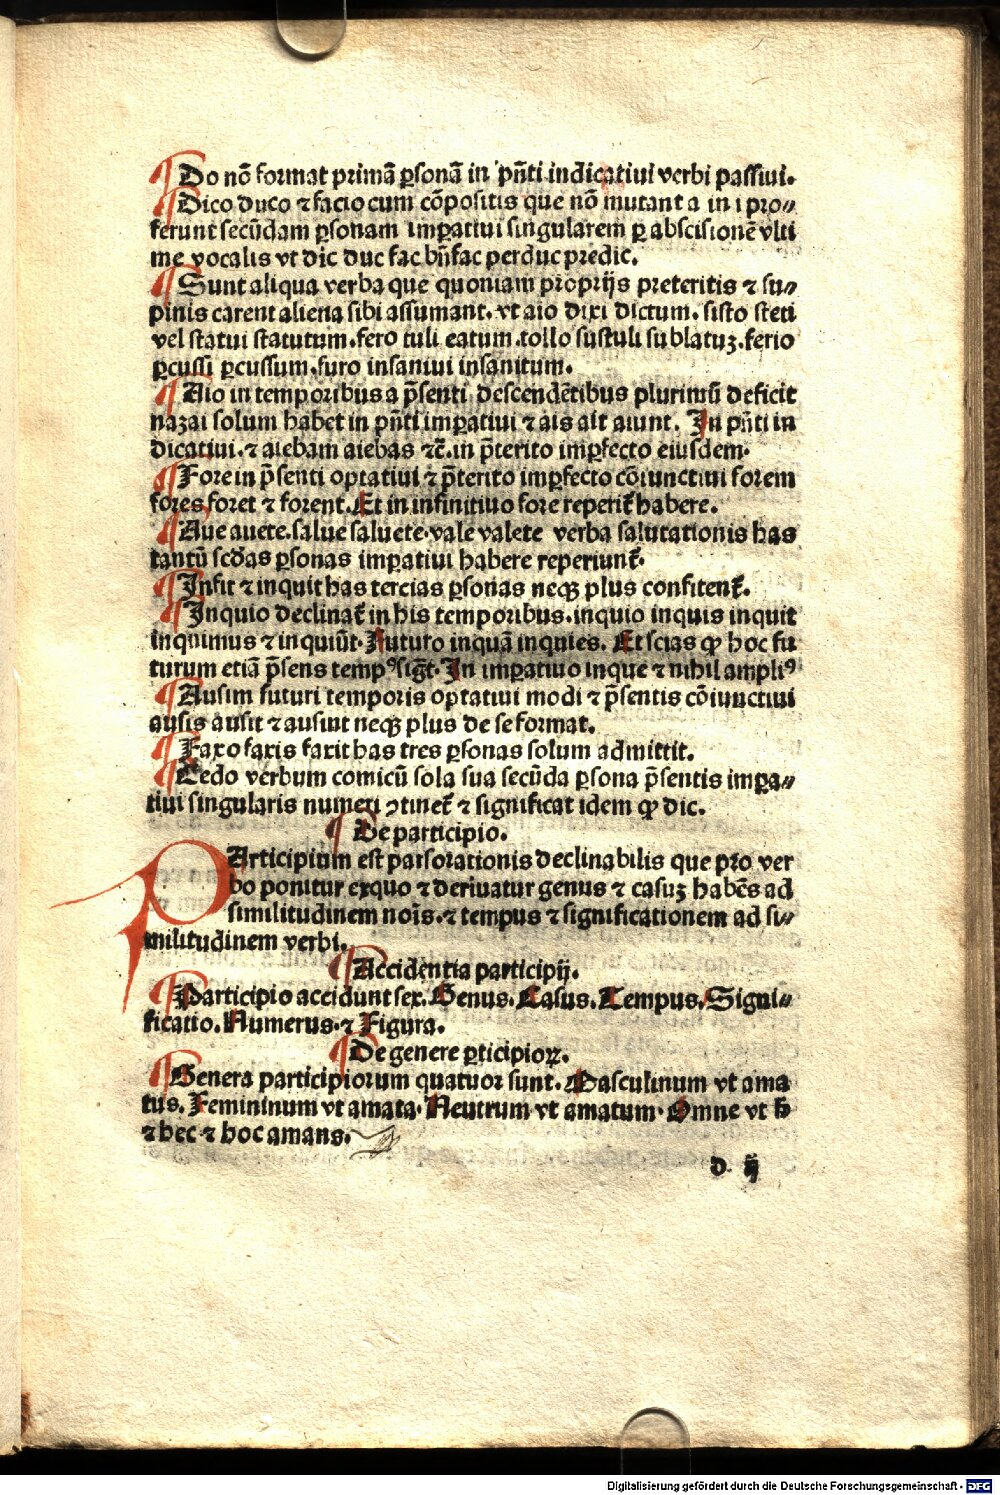 Do nō format primā ꝑsonā in p̄nti indicatiui verbi passiui.
Dico duco ⁊ facio cum cōpositis que nō mutant a in i pro⸗
ferunt secūdam ꝑsonam imꝑatiui singularem ꝑ abscisionē vlti
me vocalis vt dic duc fac bn̄fac perduc predic.
Sunt aliqua verba que quoniam proprijs preteritis ⁊ su⸗
pinis carent aliena sibi assumant. vt aio dixi dictum. sisto steti
vel statui statutum. fero tuli eatum. tollo sustuli sublatuꝫ. ferio
ꝑcussi ꝑcussum. furo insaniui insanitum.
Aio in temporibus a p̄senti descendētibus plurimū deficit
naꝫ ai solum habet in p̄nti imꝑatiui ⁊ ais ait aiunt. In p̄nti in
dicatiui. ⁊ aiebam aiebas ⁊c̄. in p̄terito imꝑfecto eiusdem.
Fore in p̄senti optatiui ⁊ p̄terito imꝑfecto cōiunctiui forem
fores foret ⁊ forent. Et in infinitiuo fore reperit᷑ habere.
Aue auete. salue saluete. vale valete verba salutationis has
tantū scd̄as ꝑsonas imꝑatiui habere reperiunt᷑.
Infit ⁊ inquit has tercias ꝑsonas neqꝫ plus confitent᷑.
Inquio declinat᷑ in his temporibus. inquio inquis inquit
inquimus ⁊ inquiūt. Futuro inquā inquies. Et scias ꝙ hoc fu
turum etiā p̄sens tempꝰ siḡt. In imꝑatiuo inque ⁊ nihil ampliꝰ
Ausim futuri temporis optatiui modi ⁊ p̄sentis cōiunctiui
ausis ausit ⁊ ausint neqꝫ plus de se format.
Faxo faxis faxit has tres ꝑsonas solum admittit.
Cedo verbum comicū sola sua secūda ꝑsona p̄sentis imꝑa⸗
tiui singularis numeri ↄtinet᷑ ⁊ significat idem ꝙ dic.
De participio.
PArticipium est pars orationis declinabilis que pro ver
bo ponitur ex quo ⁊ deriuatur genus ⁊ casuꝫ habēs ad
similitudinem nois̄. ⁊ tempus ⁊ significationem ad si⸗
militudinem verbi.
Accidentia participij.
Participio accidunt sex. Genus. Casus. Tempus. Signi⸗
ficatio. Numerus. ⁊ Figura.
De genere ꝑticipioꝝ.
Genera participiorum quatuor sunt. Masculinum vt ama
tus. Femininum vt amata. Neutrum vt amatum. Omne vt h̄
⁊ hec ⁊ hoc amans.
d ij
Digitalisierung gefördert durch die Deutsche Forschungsgemeinschaft - DFG